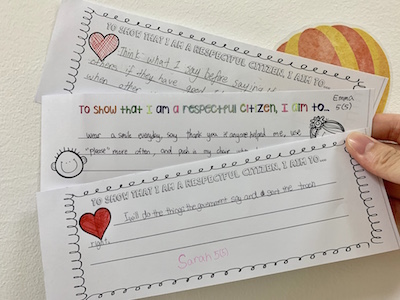 TO SHOW THAT I AM A RESPECTFUL CITIZEN, I AIM TO...
Think what I say before saying it
others, if they have good
when other
TO SHOW THAT I AM A RESPECTFUL CITIZEN, I AIM TO...
Emma
5(S)
Wear a smile everyday, say thank you if anyone helped me, use
"please" more often, and push a my chair
TO SHOW THAT I AM A RESPECTFUL CITIZEN, I AIM TO...
I will do the things the government say and sort the trash
right.
Sarah 5(S)